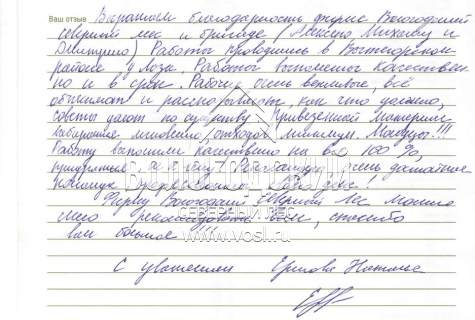 Ваш отзыв Выражаем благодарность фирме Вологодский
северный лес и бригаде (Алексею, Михаилу и
Дмитрию) Работы проводились в
районе д Лоза. Работы выполнены качествен
но и в срок. Рабочие очень вежливые, всё
объясняют и рассказывают, как что должно,
советы дают по существу. Привезённый материал
мгновенно, отходов минимум. Молодцы!!!
Работу выполнили качественно на все 100%,
очень
Фирму Вологодский Северный Лес можно
смело рекомендовать всем, спасибо
вам большое!!!
С уважением Ершова Наталья
ВОЛОГОДСКИЙ
СЕВЕРНЫЙ ЛЕС
www.vosl.ru